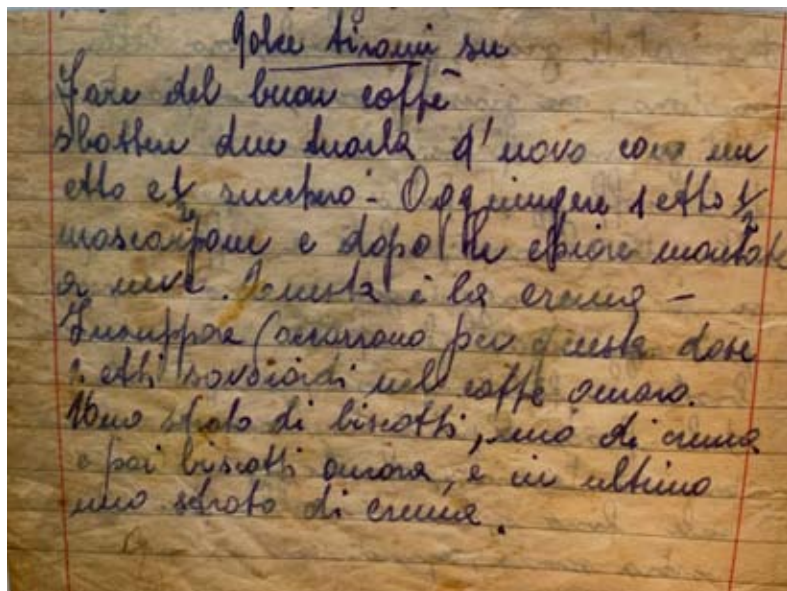 Dolce tirami su
Fare del buon caffè
sbattere due tuorla d'uovo con un
etto e 1/2 zucchero - Aggiungere 1 etto 1/2
mascarpone e dopo le chiare montate
a neve. Questa è la crema -
Insuppare (occorrono per questa dose
etti savoiardi nel caffè amaro.
Uno strato di biscotti, uno di crema
e poi biscotti ancora, e in ultimo
uno strato di crema.